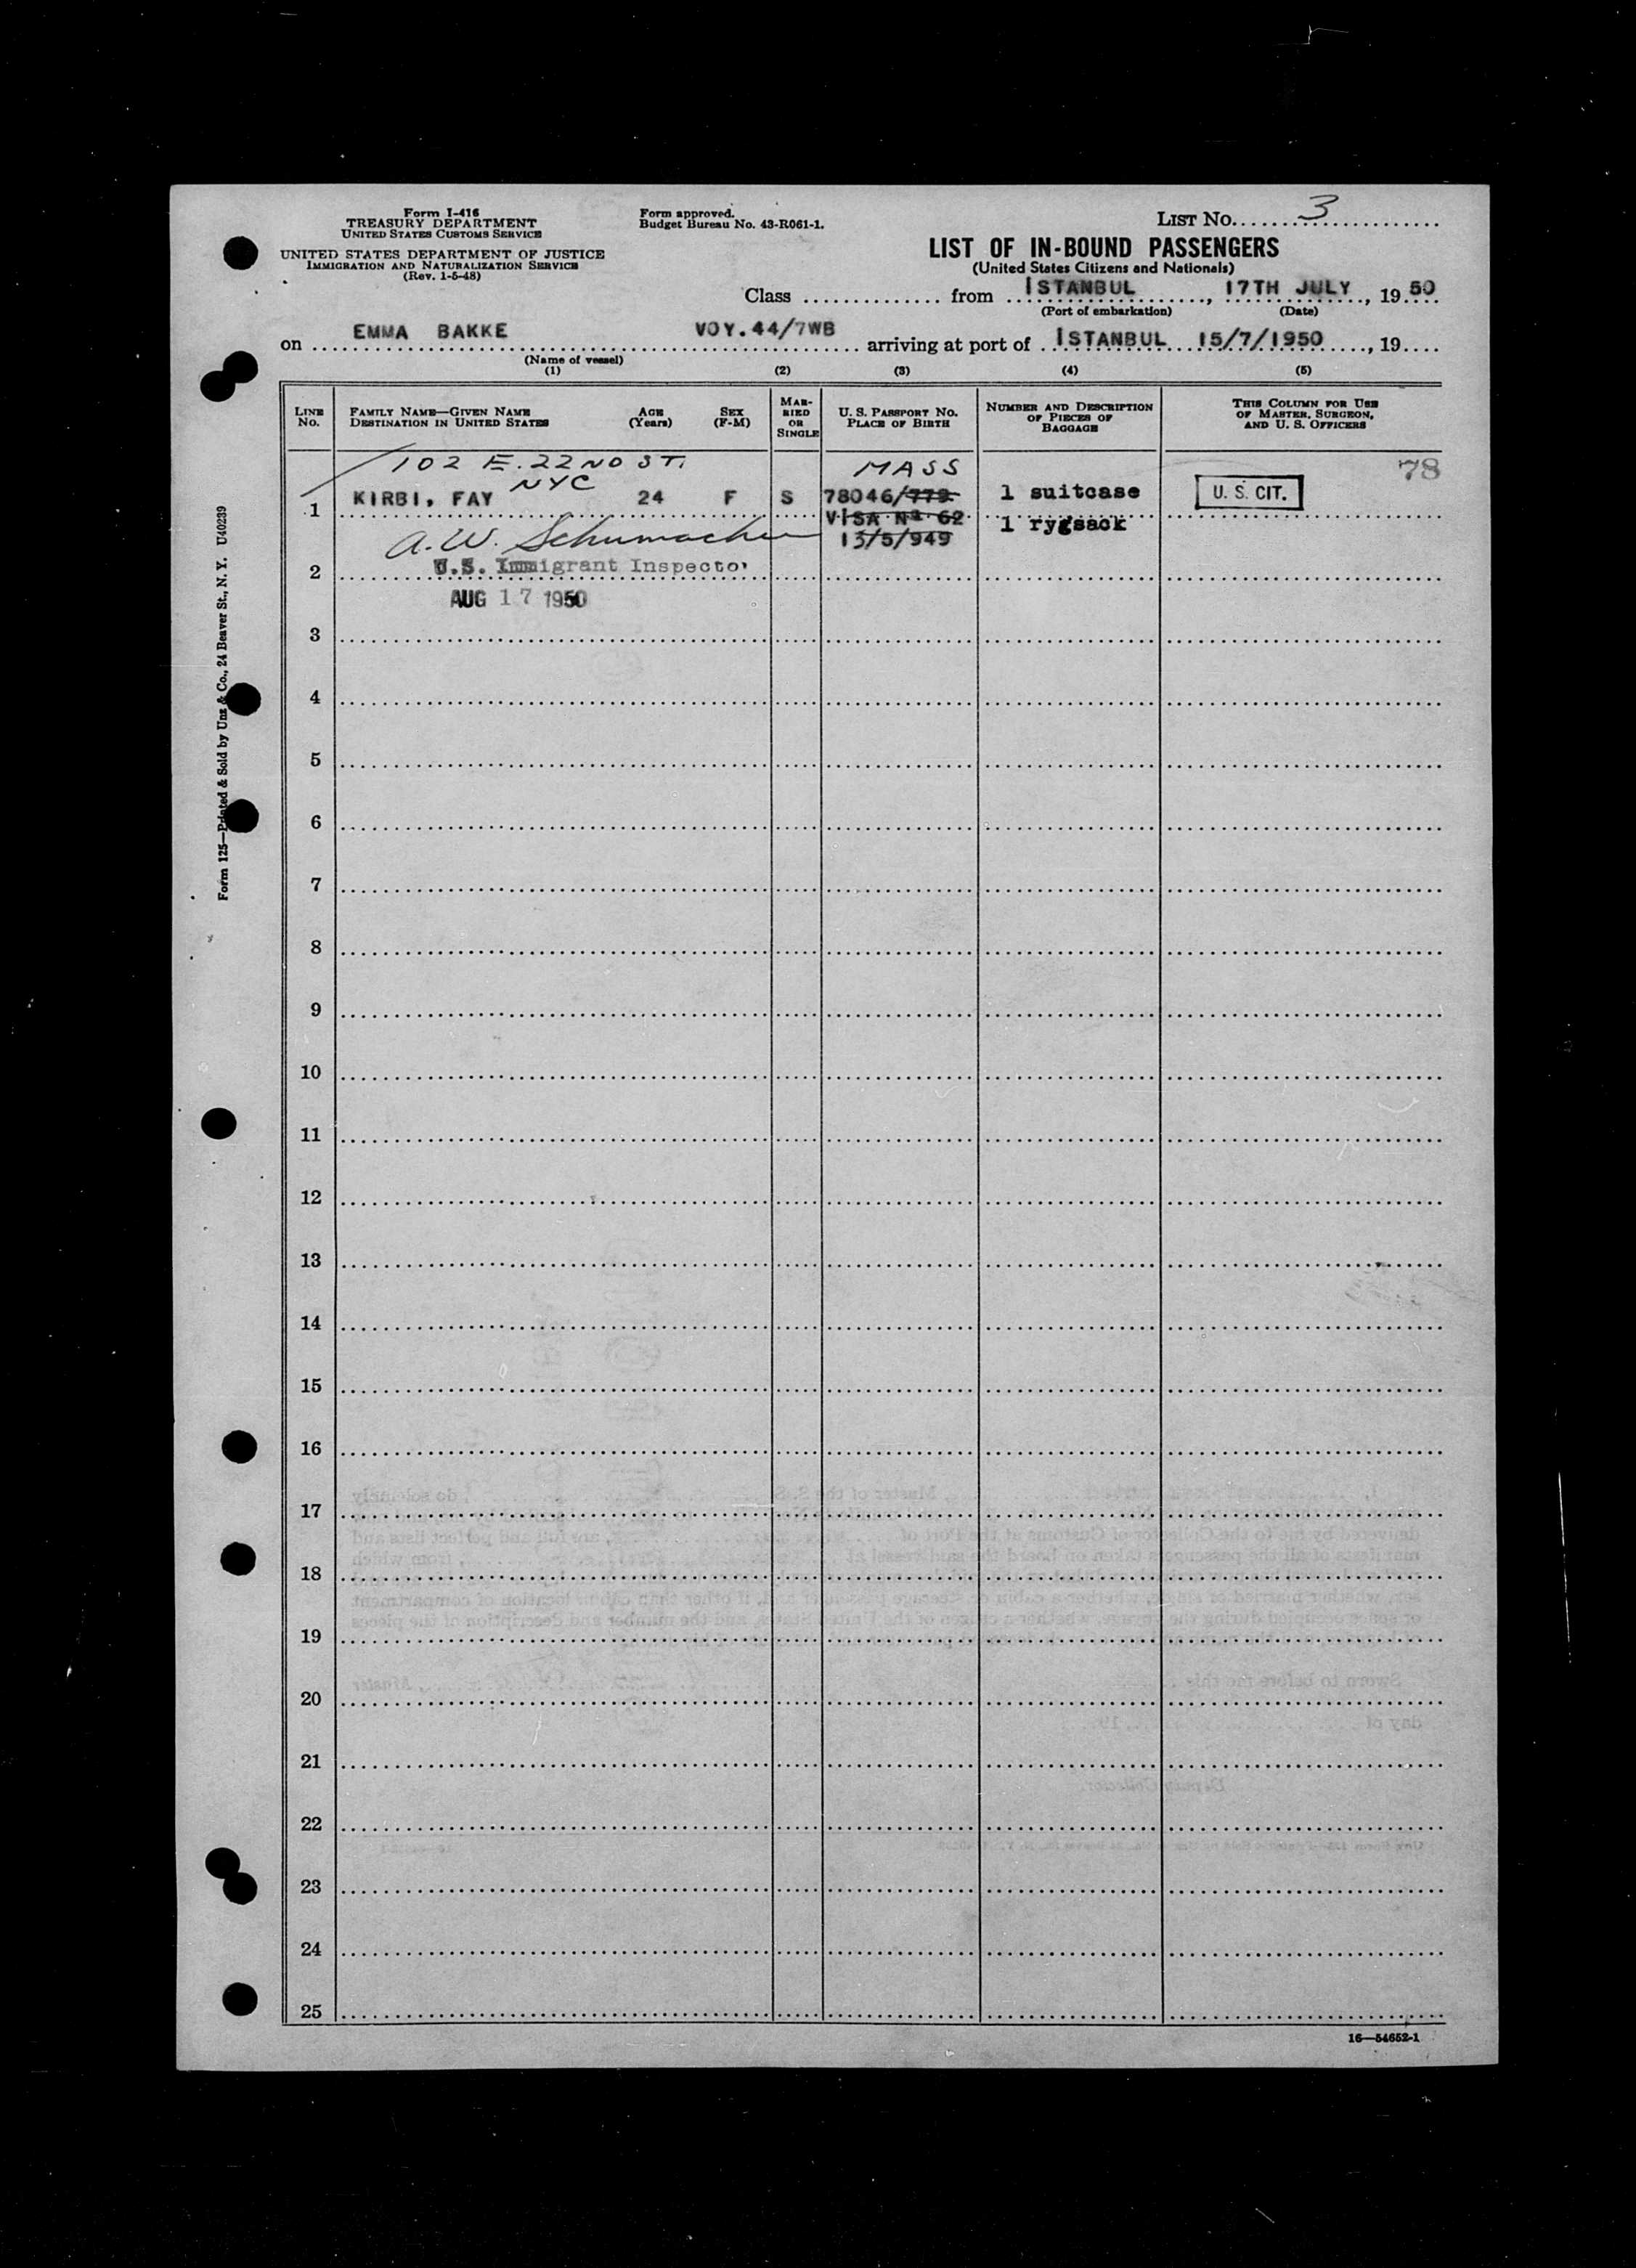 Form I-416
TREASURY DEPARTMENT
UNITED STATES CUSTOMS SERVICE
UNITED STATES DEPARTMENT OF JUSTICE
IMMIGRATION AND NATURALIZATION SERVICE
(Rev. 1-5-48)
Form approved.
Budget Bureau No. 43-R061-1.
LIST NO. 3
LIST OF IN-BOUND PASSENGERS
(United States Citizens and Nationals)
Class .............. from İSTANBUL, 17TH JULY, 1950
(Port of embarkation) (Date)
on EMMA BAKKE VOY.44/7WB arriving at port of İSTANBUL 15/7/1950, 19....
(Name of vessel)
(1) (2) (3) (4) (5)
LINE NO.
FAMILY NAME—GIVEN NAME
DESTINATION IN UNITED STATES
AGE (Years)
SEX (F-M)
MARRIED OR SINGLE
U. S. PASSPORT NO.
PLACE OF BIRTH
NUMBER AND DESCRIPTION
OF PIECES OF
BAGGAGE
THIS COLUMN FOR USE
OF MASTER, SURGEON,
AND U. S. OFFICERS
102 E. 22ND ST. MASS 78
NYC
1 KIRBI, FAY 24 F S 78046/779. 1 suitcase U. S. CIT.
VİSA Nº 62 1 rygsack
A. W. Schumacher 13/5/949
2 U.S. Immigrant Inspector
AUG 17 1950
3
4
5
6
7
8
9
10
11
12
13
14
15
16
17
18
19
20
21
22
23
24
25
16—54652-1
Form 125—Printed & Sold by Unz & Co., 24 Beaver St., N. Y. U40239